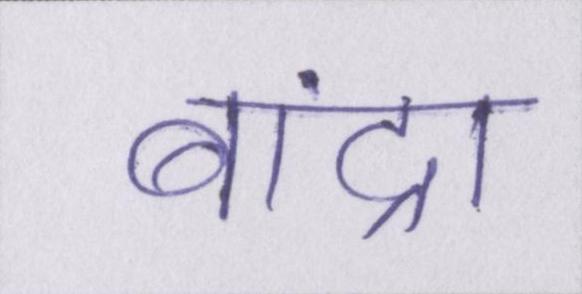 बांद्रा